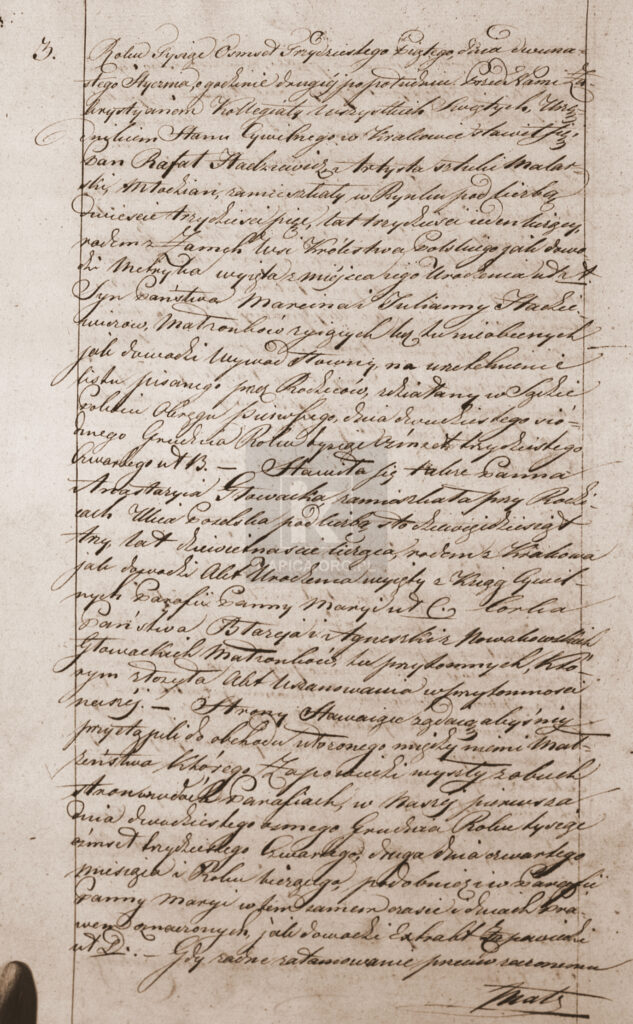 3. Roku Tysiąc Osmset Trzydziestego Piątego, dnia dwuna-
stego Stycznia, o godzinie drugiéj popołudniu. Przed Nami Za-
krystyanem Kollegiaty Wszystkich Świętych, Urzę-
dnikiem Stanu Cywilnego w Krakowie stawił się
Pan Rafał Hadziewicz, Artysta sztuki Malar-
skiéj, Młodzian, zamieszkały w Rynku pod liczbą
dwieście trzydzieści pięć, lat trzydzieści ieden liczący,
rodem z Zamch Wsi Królestwa Polskiego jak dowo-
dzi Metryka wyięta z mieysca iego Urodzenia ut A.
Syn Państwa Marcina i Julianny Hadzie-
wiczów, Małżonków żyiących lecz tu nieobecnych
jak dowodzi Wywód Słowny, na uzupełnienie
listu pisanego przez Rodziców, zdziałany w Sądzie
Pokoiu Obręgu Pierwszego, dnia dwudziestego sió-
dmego Grudnia Roku tysiąc ośmset trzydziestego
Czwartego ut B. — Stawiła się także Panna
Anastazyia Głowacka zamieszkała przy Rodzi-
cach Ulica Poselska pod liczbą sto dziewięćdziesiąt
trzy, lat dziewiętnaście licząca, rodem z Krakowa
jak dowodzi Akt Urodzenia wyięty z Xiąg Cywil-
nych Parafii Panny Maryi ut C. Córka
Państwa Błażeja i Agnieszki z Nowakowskich
Głowackich Małżonków, tu przytomnych, któ-
rym złożyła Akt Uszanowania w przytomności
naszéj. — Strony Stawaiące żądaią abyśmy
przystąpili do obchodu ułożonego między niemi Mał-
żeństwa, którego Zapowiedzi wyszły z obuch
stron w Parafiach, w Naszéj pierwsza
dnia dwudziestego osmego Grudnia Roku tysiąc
ośmset trzydziestego Czwartego, druga dnia czwartego
miesiąca i Roku bieżącego, podobnież i w Parafii
Panny Maryi w tém samem czasie i dniach Pra-
wem oznaczonych, jak dowodzi Extrakt Zapowiedzi
ut D. — Gdy żadne zatamowanie przeciw rzeczonemu
Małż